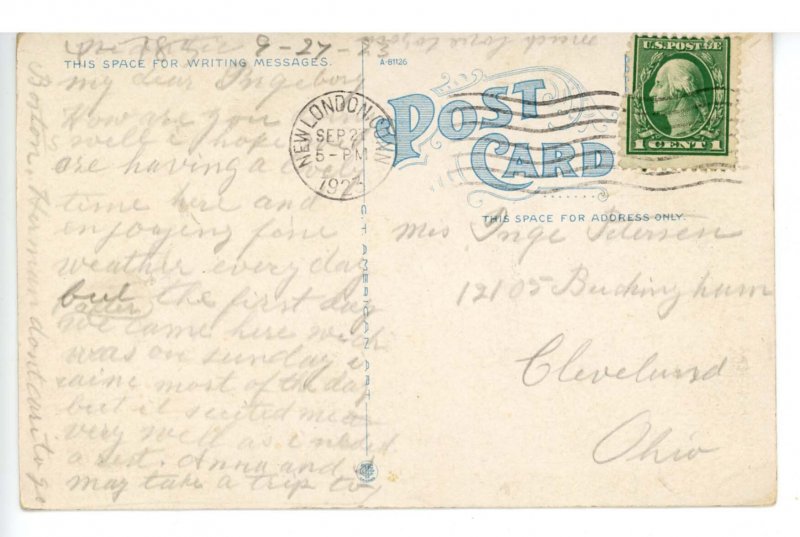 9-27-23
THIS SPACE FOR WRITING MESSAGES.
A-81126
my dear Ingeborg
How are you
well i hope
are having a lovely
time here and
enjoying fine
weather every day
but the first day
after
we came here wich
was on Sunday i
raine most of the day
but it suited me
very well as i need
a rest. Anna and i
may take a trip to
Boston Herman dont care to go
much love to you
C.T. AMERICAN ART
POST CARD
NEW LONDON, CONN
SEP 27
5-PM
1923
U.S. POSTAGE
1 CENT 1
THIS SPACE FOR ADDRESS ONLY.
Mrs Inge Pedersen
12105 Buckingham
Cleveland
Ohio